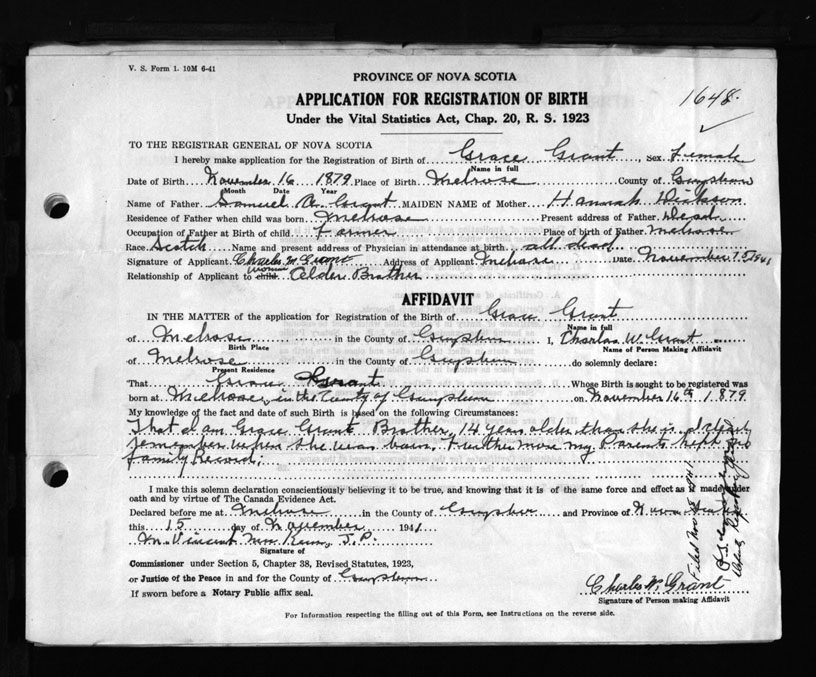 V. S. Form 1. 10M 6-41
PROVINCE OF NOVA SCOTIA
APPLICATION FOR REGISTRATION OF BIRTH
1648.
Under the Vital Statistics Act, Chap. 20, R. S. 1923
TO THE REGISTRAR GENERAL OF NOVA SCOTIA
I hereby make application for the Registration of Birth of Grace Grant, sex Female
Name in full
Date of Birth November 16 1879 Place of Birth Melrose County of
Month Date Year
Name of Father Samuel Grant MAIDEN NAME of Mother Hannah
Residence of Father when child was born Melrose Present address of Father Dead
Occupation of Father at Birth of child Farmer Place of birth of Father Melrose
Race Scotch Name and present address of Physician in attendance at birth all dead
Signature of Applicant Charles W. Grant Address of Applicant Melrose Date November 15 1941
Relationship of Applicant to child Older Brother
AFFIDAVIT
IN THE MATTER of the application for Registration of the Birth of Grace Grant
Name in full
of Melrose in the County of I, Charles W. Grant
Birth Place Name of Person Making Affidavit
of Melrose in the County of do solemnly declare:
Present Residence
That Grant Whose Birth is sought to be registered was
born at Melrose, in the County of on November 16th 1879
My knowledge of the fact and date of such Birth is based on the following Circumstances:
That I am Grace Grant Brother, 14 years older than she is
remember when she was born. Further more my Parents kept
family Record.
I make this solemn declaration conscientiously believing it to be true, and knowing that it is of the same force and effect as if made under
oath and by virtue of The Canada Evidence Act.
Declared before me at Melrose in the County of and Province of Nova Scotia
this 15 day of November 1941
Vincent J. P.
Signature of
Commissioner under Section 5, Chapter 38, Revised Statutes, 1923,
or Justice of the Peace in and for the County of
If sworn before a Notary Public affix seal.
Charles W. Grant
Signature of Person making Affidavit
For Information respecting the filling out of this Form, see Instructions on the reverse side.